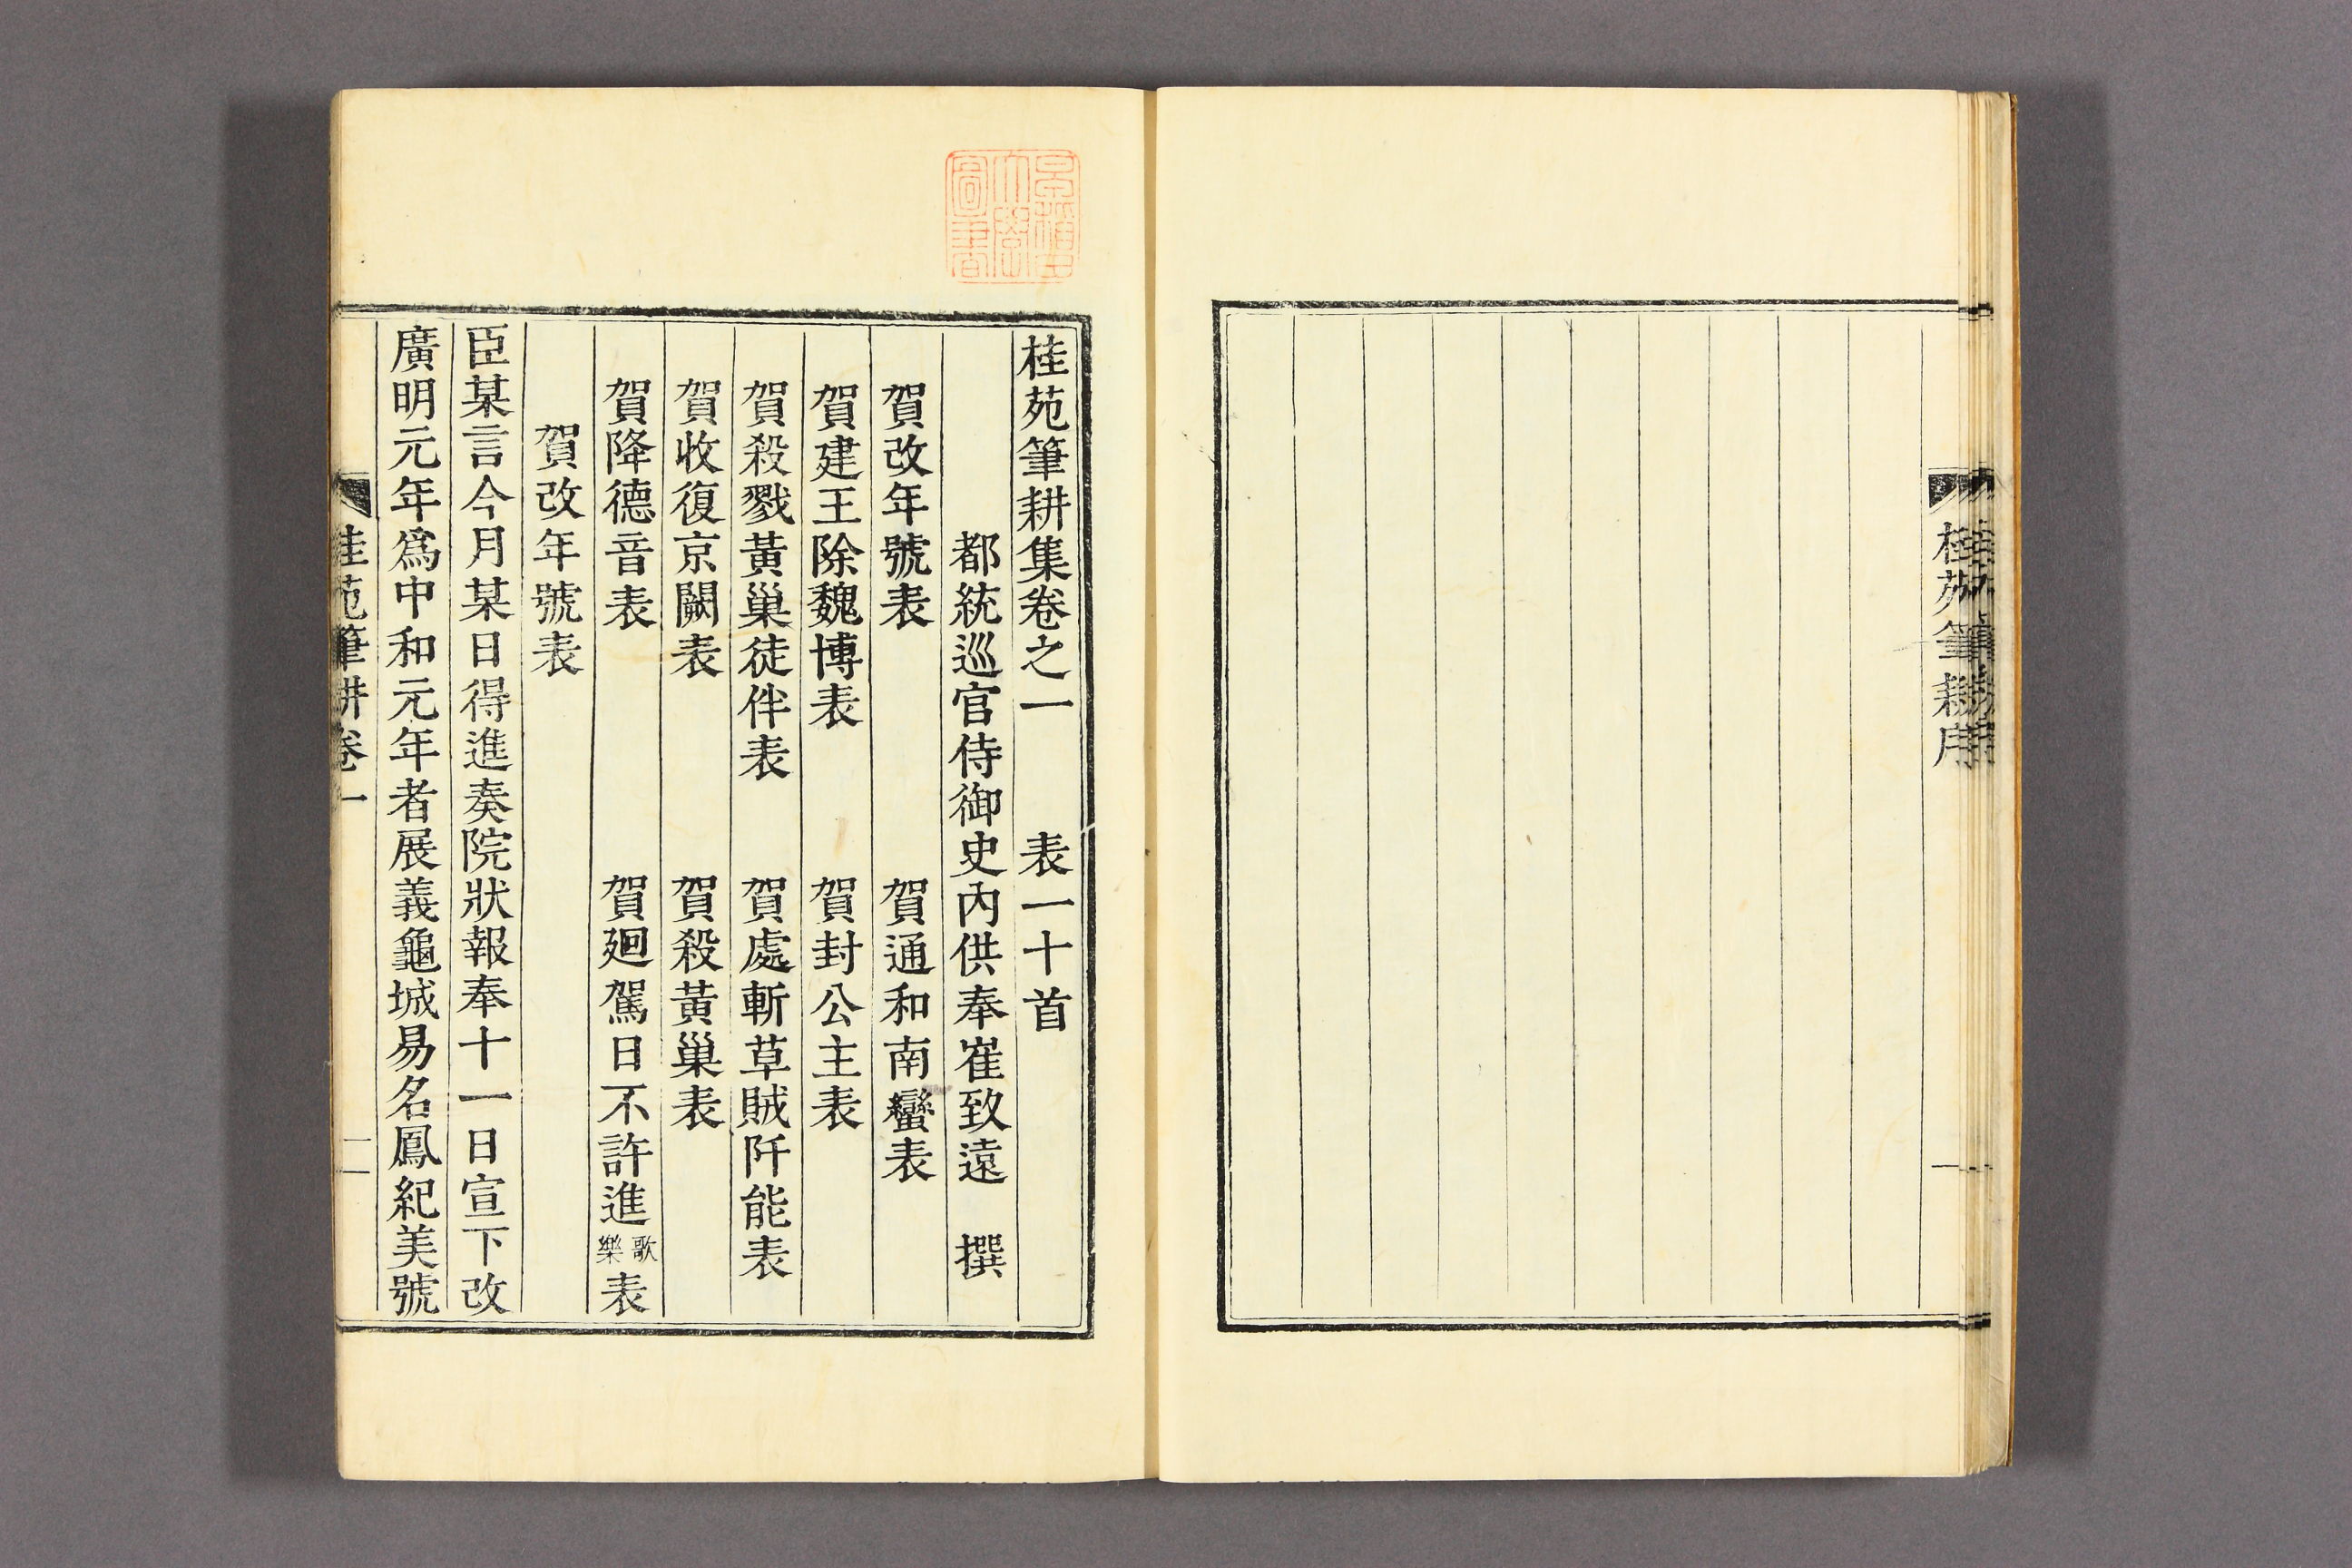 桂苑筆耕序
桂苑筆耕集卷之一 表一十首
都統巡官侍御史內供奉崔致遠 撰
賀改年號表 賀通和南蠻表
賀建王除魏博表 賀封公主表
賀殺戮黃巢徒伴表 賀處斬草賊阡能表
賀收復京闕表 賀殺黃巢表
賀降德音表 賀廻駕日不許進歌樂表
賀改年號表
臣某言今月某日得進奏院狀報奉十一日宣下改
廣明元年爲中和元年者展義龜城易名鳳紀美號
桂苑筆耕卷一
早稻田大學圖書